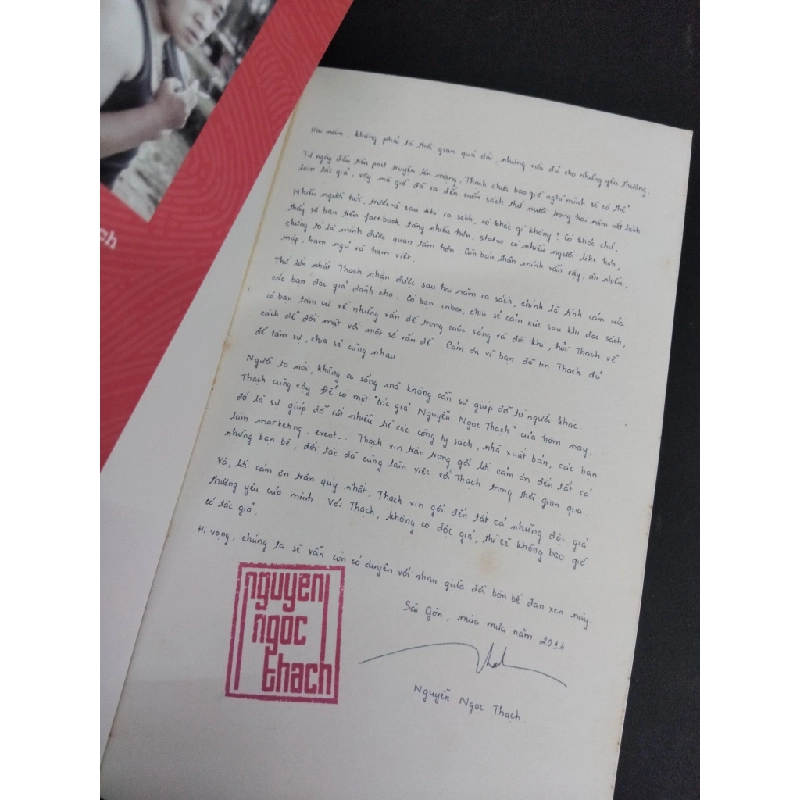 ch
Hai năm, không phải là thời gian quá dài, nhưng vừa đủ cho những yêu thương.
Từ ngày đầu tiên post truyện lên mạng, Thạch chưa bao giờ nghĩ mình sẽ có thể
làm tác giả, vậy mà giờ đã ra đến cuốn sách thứ mười trong hai năm viết lách
Nhiều người hỏi, trước và sau khi ra sách, có khác gì không? Có khác chứ,
thấy số bạn trên facebook tăng nhiều hơn, status có nhiều người like hơn,
chứng tỏ là mình được quan tâm hơn. Còn bản thân mình vẫn vậy, ăn nhiều,
mập, ham ngủ và ham viết.
Thứ lớn nhất Thạch nhận được sau hai năm ra sách, chính là tình cảm của
các bạn đọc giả dành cho. Có bạn inbox, chia sẻ cảm xúc sau khi đọc sách,
có bạn tâm sự về những vấn đề trong cuộc sống và đôi khi, hỏi Thạch về
cách để đối mặt với một số vấn đề. Cảm ơn vì bạn đã tin Thạch đủ
để tâm sự, chia sẻ cùng nhau
Người ta nói, không ai sống mà không cần sự giúp đỡ từ người khác.
Thạch cũng vậy. Để có một "tác giả Nguyễn Ngọc Thạch" của hôm nay,
đó là sự giúp đỡ rất nhiều từ các công ty sách, nhà xuất bản, các bạn
làm marketing, event... Thạch xin trân trọng gởi lời cảm ơn đến tất cả
những bạn bè, đối tác đã cùng làm việc với Thạch trong thời gian qua
Và, lời cảm ơn trân quý nhất, Thạch xin gởi đến tất cả những độc giả
thương yêu của mình. Với Thạch, không có độc giả, thì sẽ không bao giờ
có tác giả.
Hi vọng, chúng ta sẽ vẫn còn có duyên với nhau giữa đời bốn bề đan xen này.
Sài Gòn, mùa mưa năm 2014
nguyen
ngoc
thach
Nguyễn Ngọc Thạch